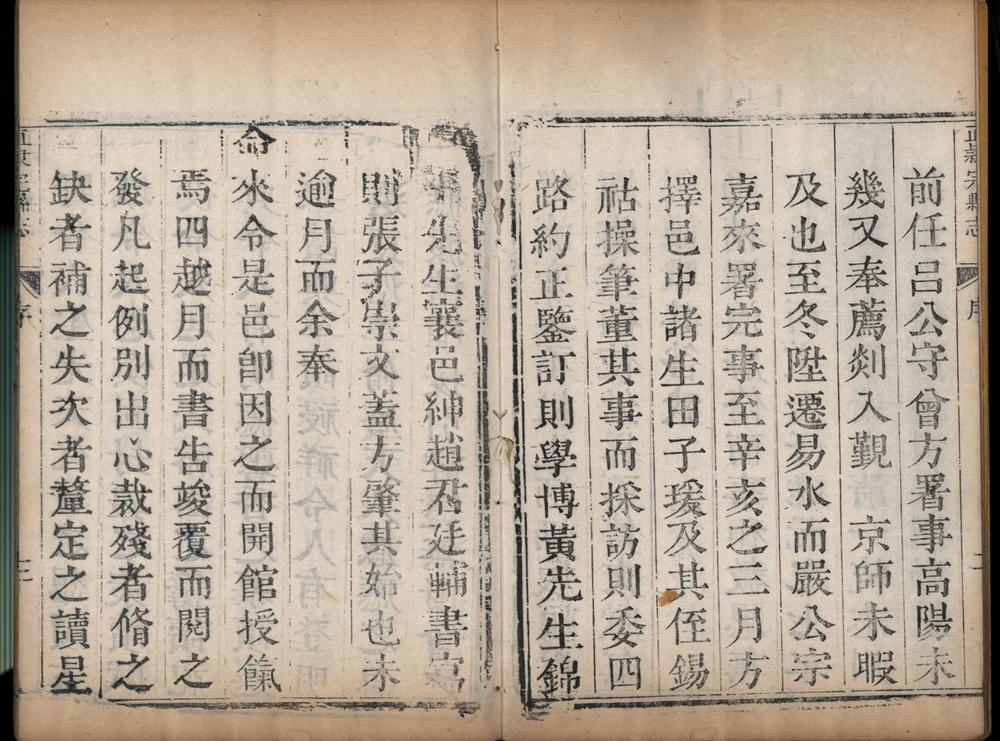 前任呂公守曾方署事高陽未
幾又奉薦剡入覲 京師未暇
及也至冬陞遷易水而嚴公宗
嘉來署完事至辛亥之三月方
擇邑中諸生田子瑗及其侄錫
祜操筆董其事而採訪則委四
路約正鑒訂則學博黃先生錦
先生襄邑紳趙君廷輔書寫
則張子崇文蓋方肇其始也未
逾月而余奉
命來令是邑卽因之而開館授餼
焉四越月而書告竣覆而閱之
發凡起例別出心裁殘者脩之
缺者補之失次者釐定之讀星
序